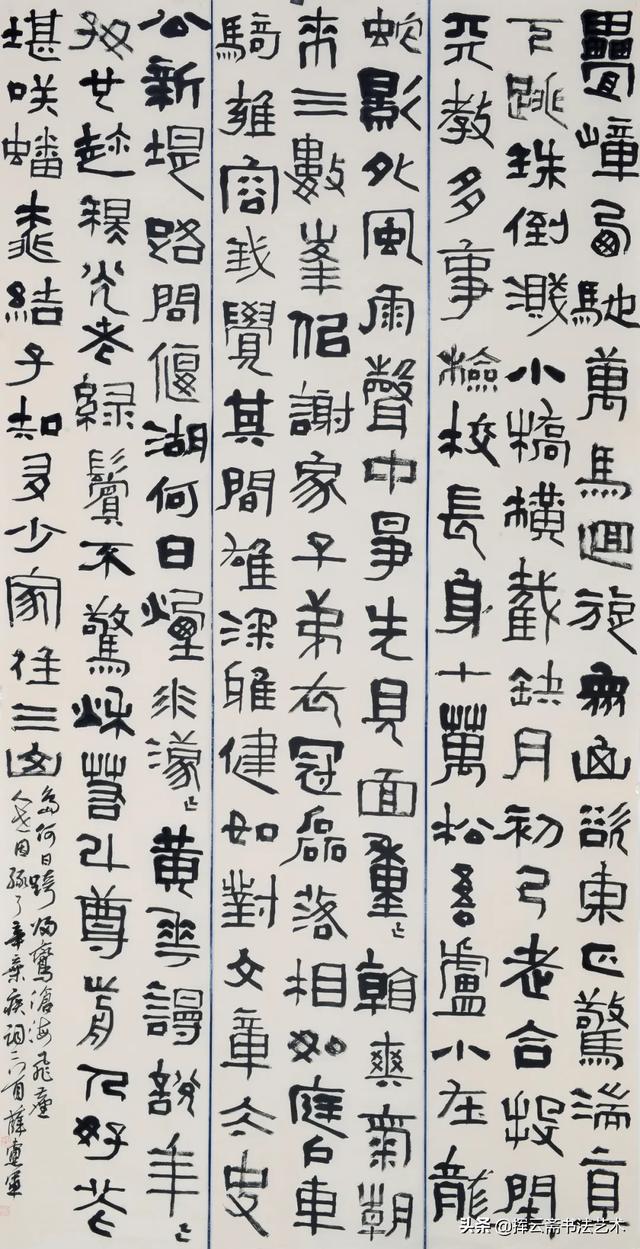 疊嶂西馳萬馬迴旋衆山欲東正驚湍直
下跳珠倒濺小橋橫截缺月初弓老合投閑
天教多事檢校長身十萬松吾廬小在龍
蛇影外風雨聲中爭先見面重〻翰爽氣朝
來三數峯似謝家子弟衣冠磊落相如庭戶車
騎雍容我覺其間雄深雅健如對文章太史
公新堤路問偃湖何日煙水濛〻黃花謾說年〻
好也趁秋光老綠鬢不驚秋若斗尊前人好花
堪咲蟠桃結子知多少家住三山
島何日跨歸鸞滄海飛塵
人世因緣了辛棄疾詞二首薛
头条 @挥云斋书法艺术